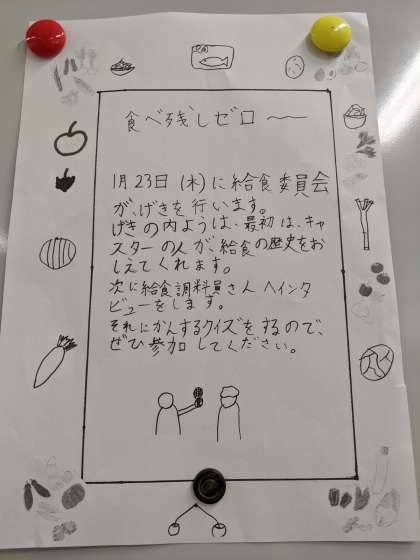 食べ残しゼロ〜
1月23日(木)に給食委員会
が、げきを行います。
げきの内ようは、最初は、キャ
スターの人が、給食の歴史をお
しえてくれます。
次に給食調料員さんへインタ
ビューをします。
それにかんするクイズをするので、
ぜひ参加してください。